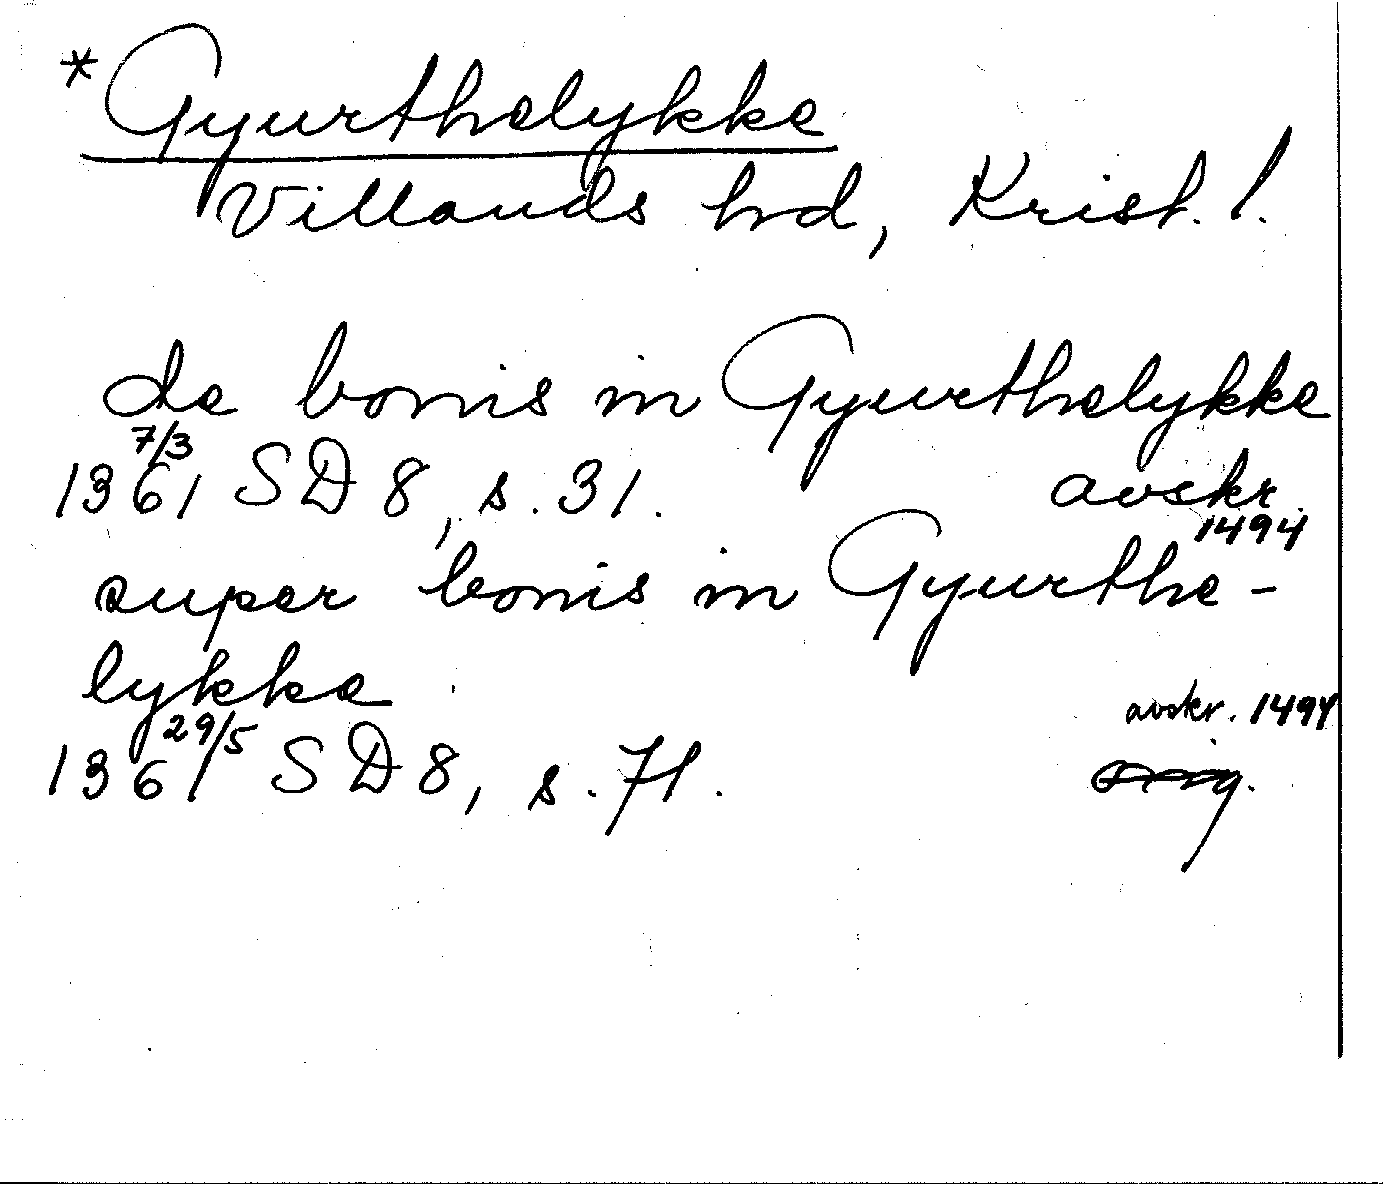 *Gyurthelykke
Villands hd, Krist. l.
de bonis in Gyurthelykke
1361 7/3 SD 8, s. 31. avskr. 1494
super bonis in Gyurthe-
lykke
1361 29/5 SD 8, s. 71. avskr. 1494